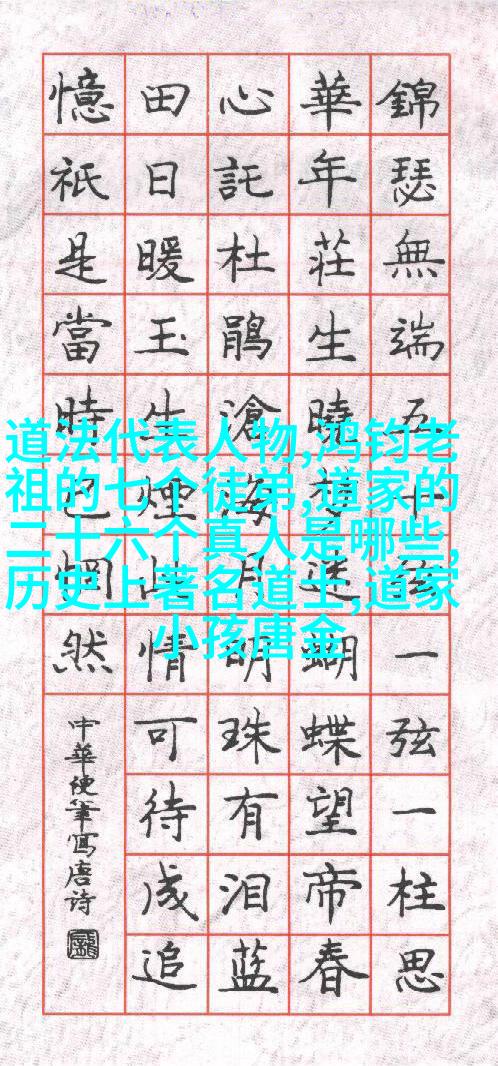 錦瑟無端五十絃一弦一柱思
華年莊生曉夢迷蝴蝶望帝春
心託杜鵑滄海月明珠有泪蓝
田日暖玉生煙此情可待成追
憶祇是當時已惘然
中華硬筆寫唐诗
道法代表人物,鸿钧老
祖的七个徒弟,道家的
二十六个真人是哪些,
历史上著名道士,道家
小孩唐金